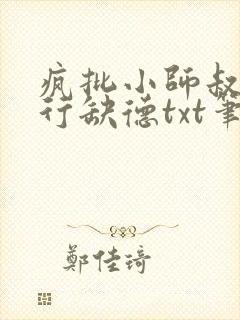 疯批小師叔
行缺德txt筆
鄭佳琦